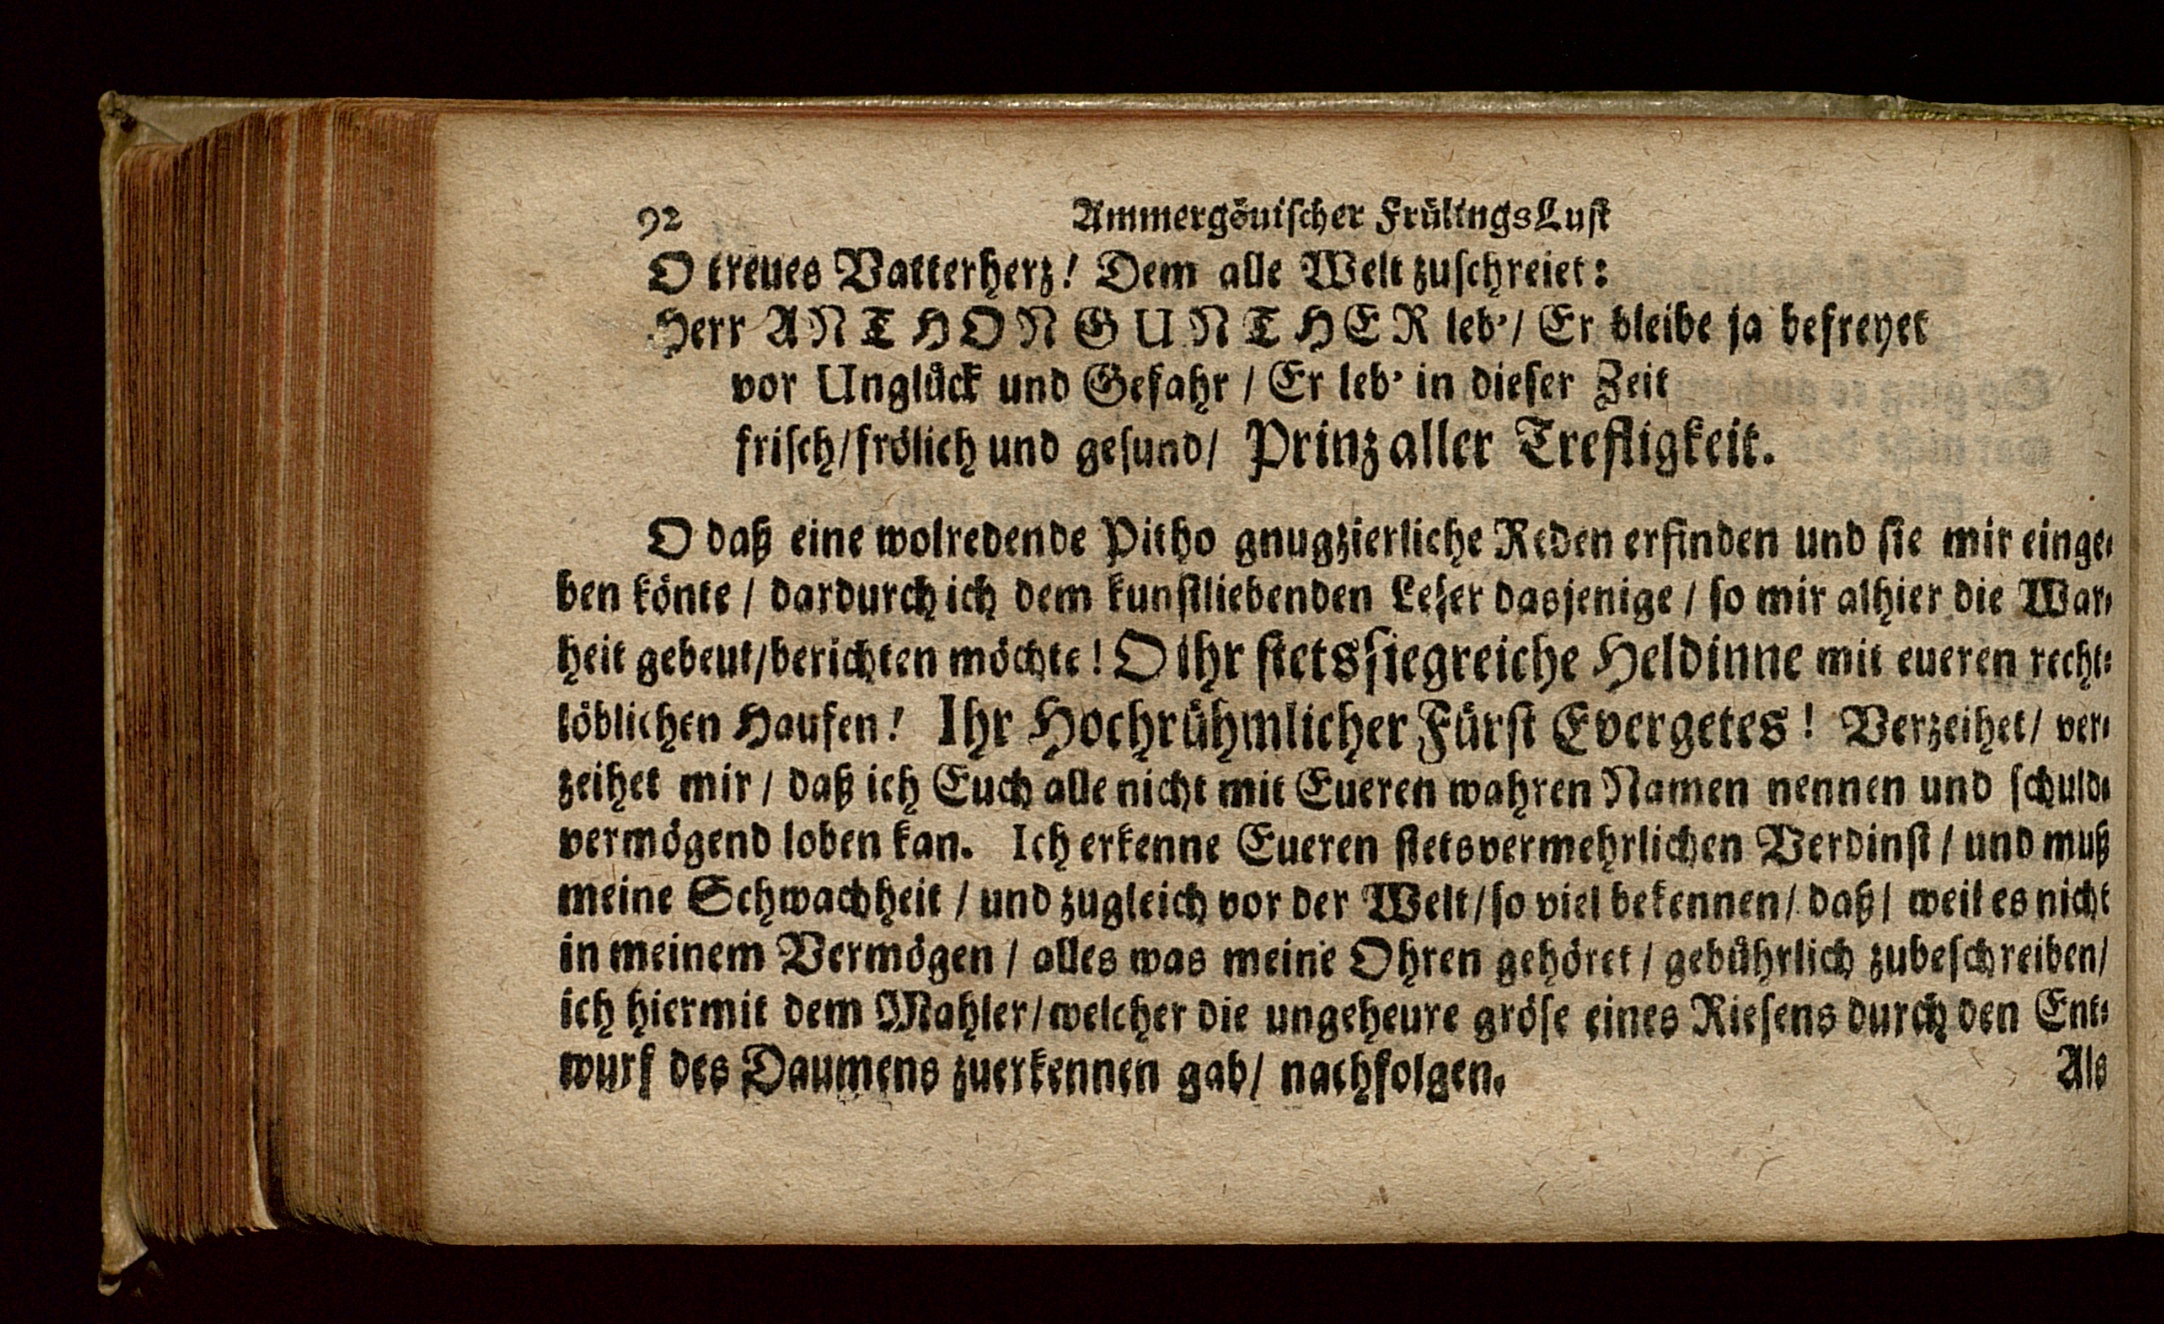 92 Ammergöuiſcher FrülingsLuſt
O treues Vatterherz! Dem alle Welt zuſchreiet:
Herr ANTHON GUNTHER leb'/ Er bleibe ja befreyet
vor Unglück und Gefahr / Er leb' in dieſer Zeit
friſch/frölich und geſund/ Prinz aller Trefligkeit.
O daß eine wolredende Pitho gnugzierliche Reden erfinden und ſie mir einge-
ben könte / dardurch ich dem kunſtliebenden Leſer dasjenige / ſo mir alhier die War-
heit gebeut/berichten möchte! O ihr ſtetsſiegreiche Heldinne mit eueren recht-
löblichen Haufen! Ihr Hochrühmlicher Fürſt Evergetes! Verzeihet/ ver-
zeihet mir / daß ich Euch alle nicht mit Eueren wahren Namen nennen und ſchuld-
vermögend loben kan. Ich erkenne Eueren ſtetsvermehrlichen Verdinſt / und muß
meine Schwachheit / und zugleich vor der Welt/ſo viel bekennen/ daß/ weil es nicht
in meinem Vermögen / alles was meine Ohren gehöret / gebührlich zubeſchreiben/
ich hiermit dem Mahler/welcher die ungeheure gröſe eines Rieſens durch den Ent-
wurf des Daumens zuerkennen gab/ nachfolgen.
Als